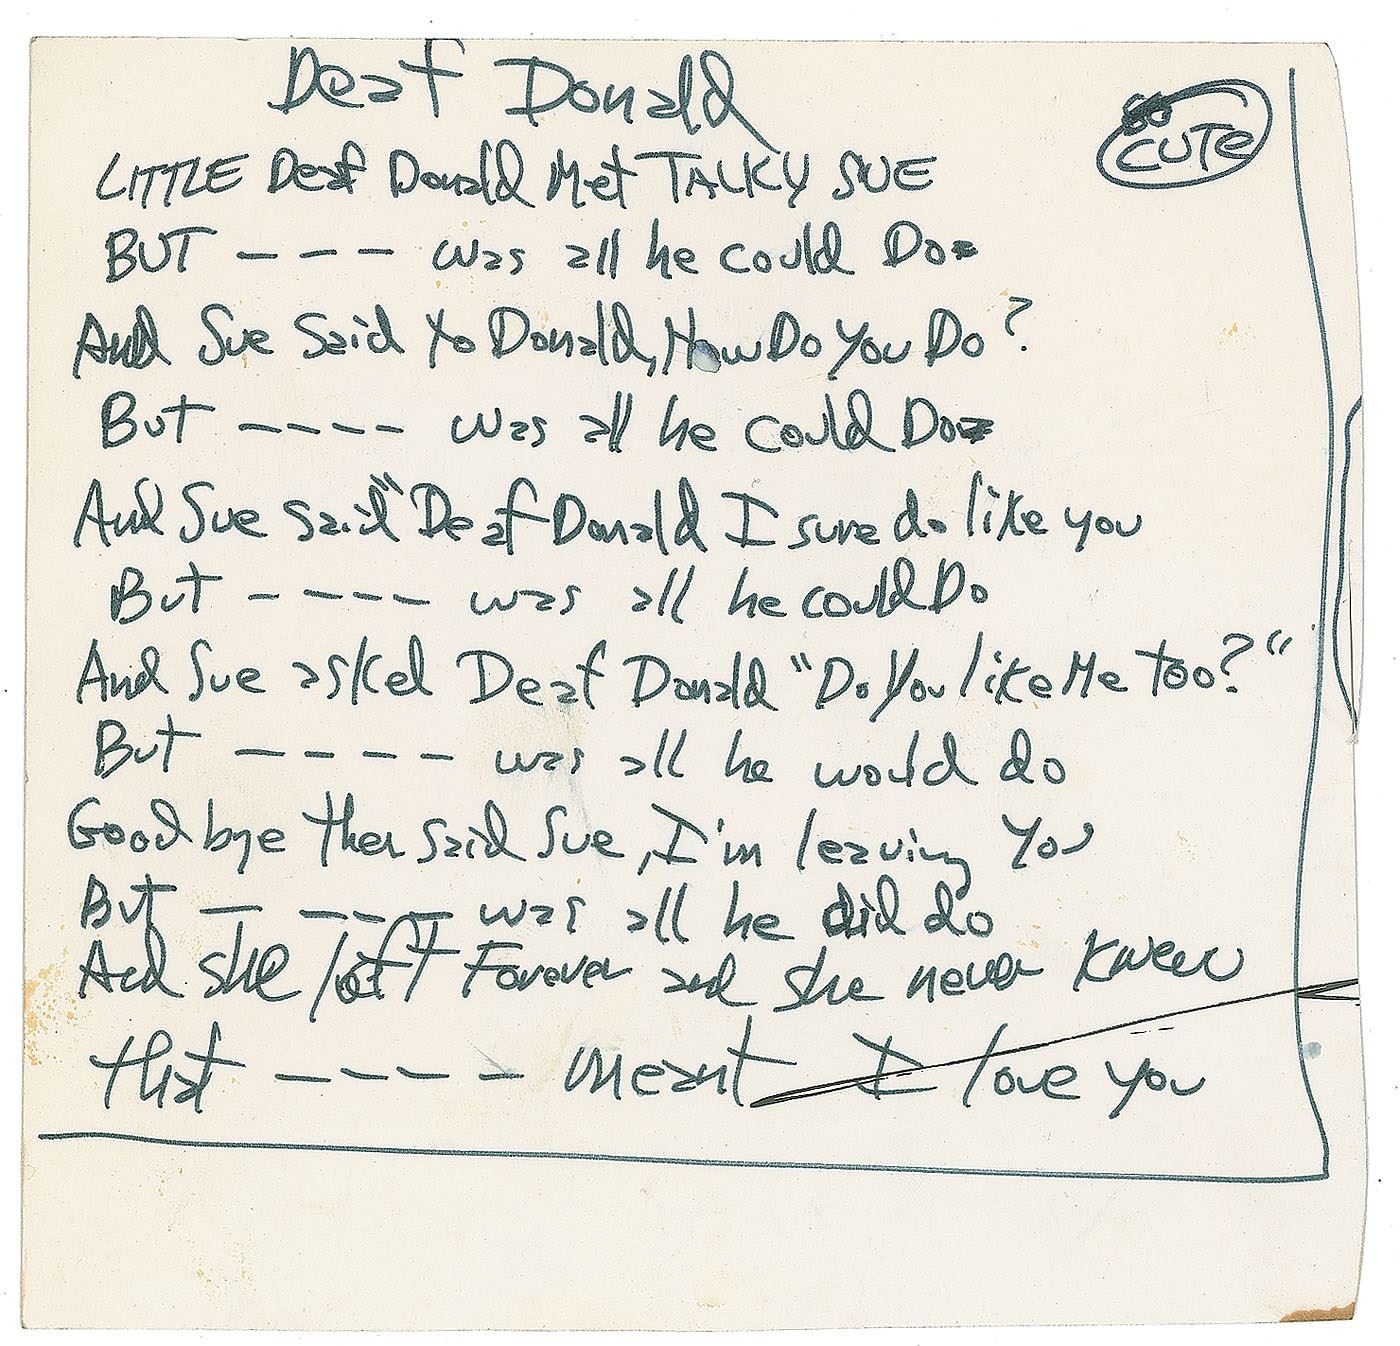 Deaf Donald
SO
CUTE
LITTLE Deaf Donald Met TALKY SUE
BUT - - - - was all he could Do
And Sue Said to Donald, How Do You Do?
But - - - - was all he could Do
And Sue said "Deaf Donald I sure do like you
But - - - - was all he could Do
And Sue asked Deaf Donald "Do You like Me too?"
But - - - - was all he would do
Goodbye then said Sue, I'm leaving You
But - - - - was all he did do
And she left Forever and she never Knew
that - - - - meant I love you